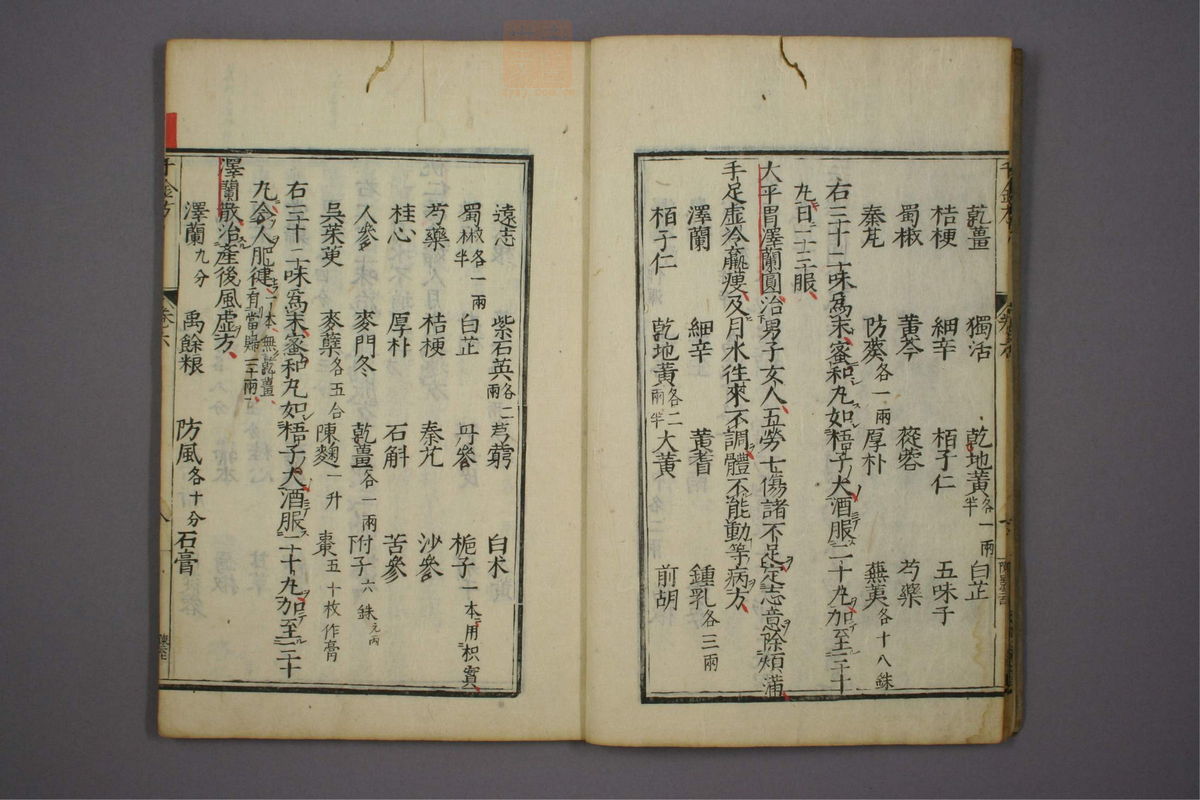 乾薑 獨活 乾地黃各一兩半 白芷
桔梗 細辛 栢子仁 五味子
蜀椒 黃芩 蓯蓉 芍藥
秦芃 防葵各一兩 厚朴 蕪荑各十八銖
右三十二味爲末蜜和丸如梧子大酒服二十丸加至三十
丸日二十三服
大平胃澤蘭圓治男子女人五勞七傷諸不足定志意除煩滿
手足虛冷羸瘦及月水往來不調體不能動等病方
澤蘭 細辛 黃耆 鍾乳各三兩
栢子仁 乾地黃各二兩半 大黃 前胡
遠志 紫石英各二兩 芎藭 白朮
蜀椒各一兩半 白芷 丹參 梔子一本用枳實
芍藥 桔梗 秦芃 沙參
桂心 厚朴 石斛 苦參
人參 麥門冬 乾薑各一兩 附子六銖元兩
吳茱萸 麥蘖各五合 陳麴一升 棗五十枚作膏
右三十二味爲末蜜和丸如梧子大酒服二十丸加至三十
丸令人肥健一本無乾薑有當歸三兩
澤蘭散治產後風虛方
澤蘭九分 禹餘粮 防風各十分 石膏
千金方 卷六